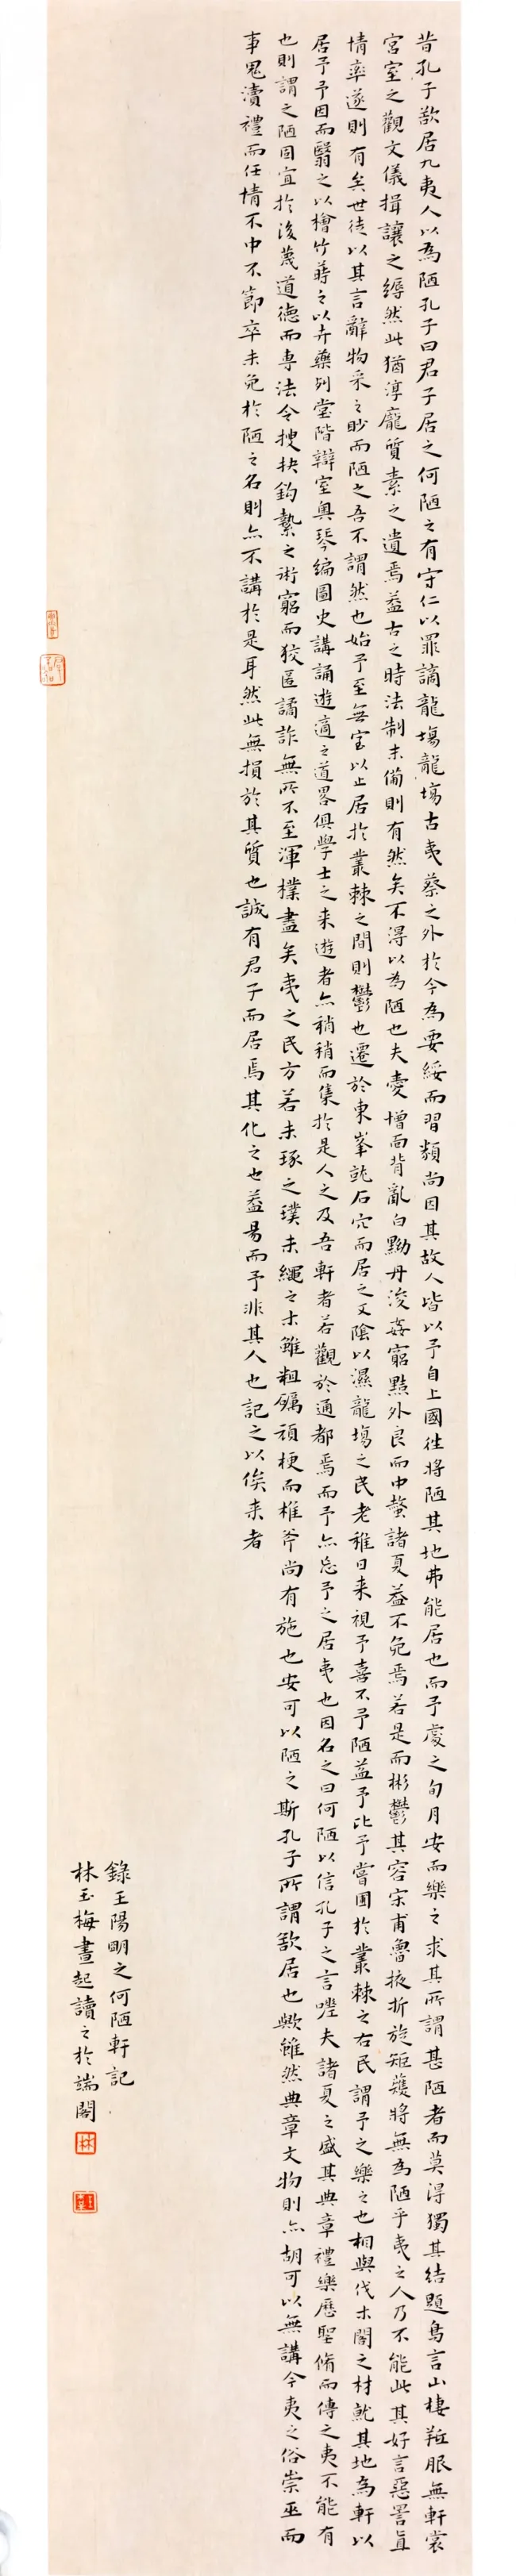 昔孔子欲居九夷人以為陋孔子曰君子居之何陋之有守仁以罪謫龍場龍場古夷蔡之外於今為要綏而習類尚因其故人皆以予自上國往將陋其地弗能居也而予處之旬月安而樂之求其所謂甚陋者而莫得獨其結題鳥言山棲羝服無軒裳
宮室之觀文儀揖讓之縟然此猶淳龐質素之遺焉蓋古之時法制未備則有然矣不得以為陋也夫愛憎面背亂白黝丹浚姦窮黠外良而中螫諸夏蓋不免焉若是而彬鬱其容宋甫魯掖折旋矩蠖將無為陋乎夷之人乃不能此其好言惡詈直
情率遂則有矣世徒以其言辭物采之眇而陋之吾不謂然也始予至無室以止居於叢棘之間則鬱也遷於東峯就石穴而居之又陰以濕龍場之民老稚日來視予喜不予陋益予比予嘗圃於叢棘之右民謂予之樂之也相與伐木閣之材就其地為軒以
居予予因而翳之以檜竹蒔之以卉藥列堂階辯室奧琴編圖史講誦遊適之道畧俱學士之來遊者亦稍稍而集於是人之及吾軒者若觀於通都焉而予亦忘予之居夷也因名之曰何陋以信孔子之言嘡夫諸夏之盛其典章禮樂歷聖脩而傳之夷不能有
也則謂之陋固宜於後蔑道德而專法令搜抉鈎縶之術窮而狡匿譎詐無所不至渾樸盡矣夷之民方若未琢之璞未繩之木雖粗礪頑梗而椎斧尚有施也安可以陋之斯孔子所謂欲居也歟雖然典章文物則亦胡可以無講今夷之俗崇巫而
事鬼瀆禮而任情不中不節卒未免於陋之名則亦不講於是耳然此無損於其質也誠有君子而居焉其化之也蓋易而予非其人也記之以俟來者
錄王陽明之何陋軒記
林玉梅晝起讀之於端閣
林